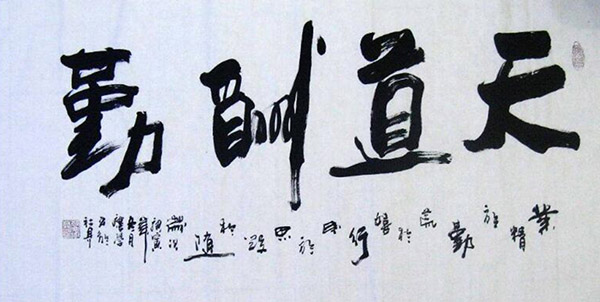 天道酬勤
業精於勤荒於嬉行成於思毀於随